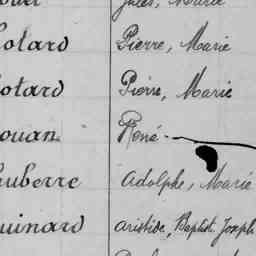 Jules, Marie
otard Pierre, Marie
otard Pierre, Marie
ouan René
uberre Adolphe, Marie
uinard Aristide, Baptist Joseph